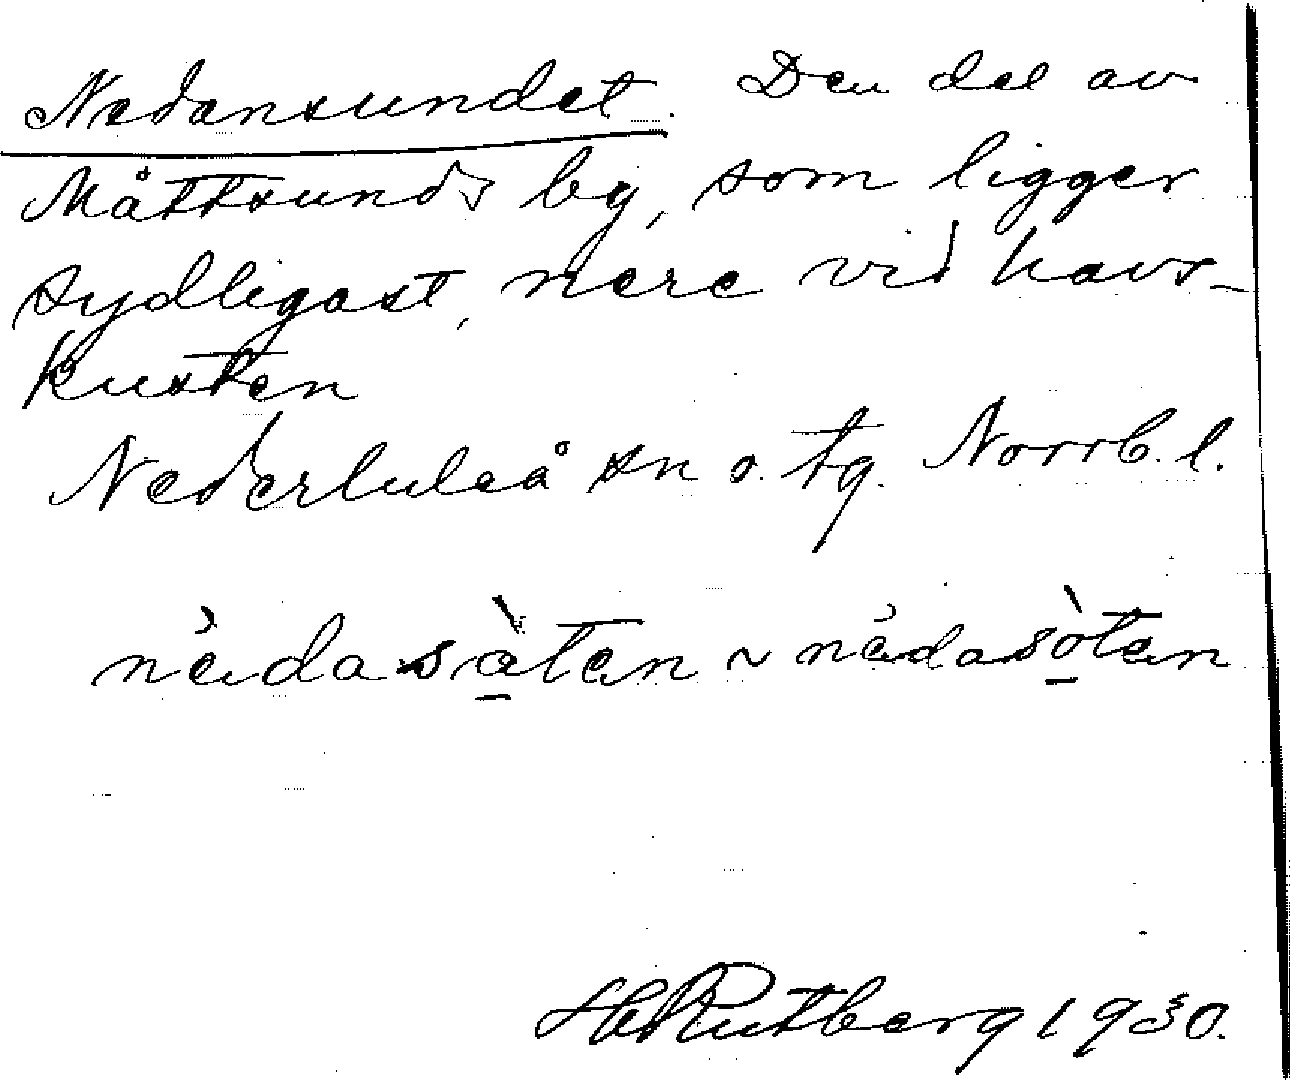 Nedansundet. Den del av
Måttsunds by, som ligger
sydligast, nere vid havs-
kusten
Nederluleå sn o. tg. Norrb. l.
nèdasàten ~ nèdasòten
H Rutberg 1930.